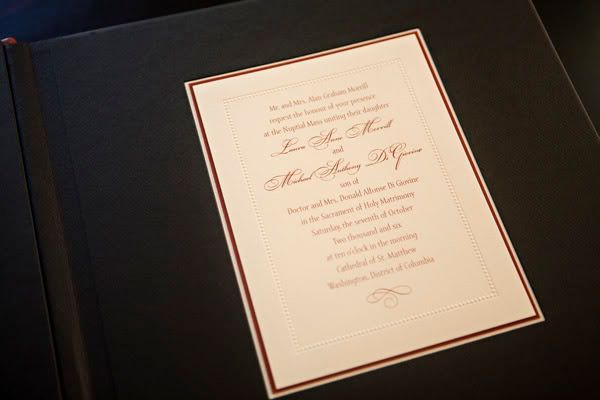 Mr. and Mrs. Alan Graham Morrill
request the honour of your presence
at the Nuptial Mass uniting their daughter
Laura Anne Morrill
and
Michael Anthony Di Giovine
son of
Doctor and Mrs. Donald Alfonse Di Giovine
in the Sacrament of Holy Matrimony
Saturday, the seventh of October
Two thousand and six
at ten o'clock in the morning
Cathedral of St. Matthew
Washington, District of Columbia